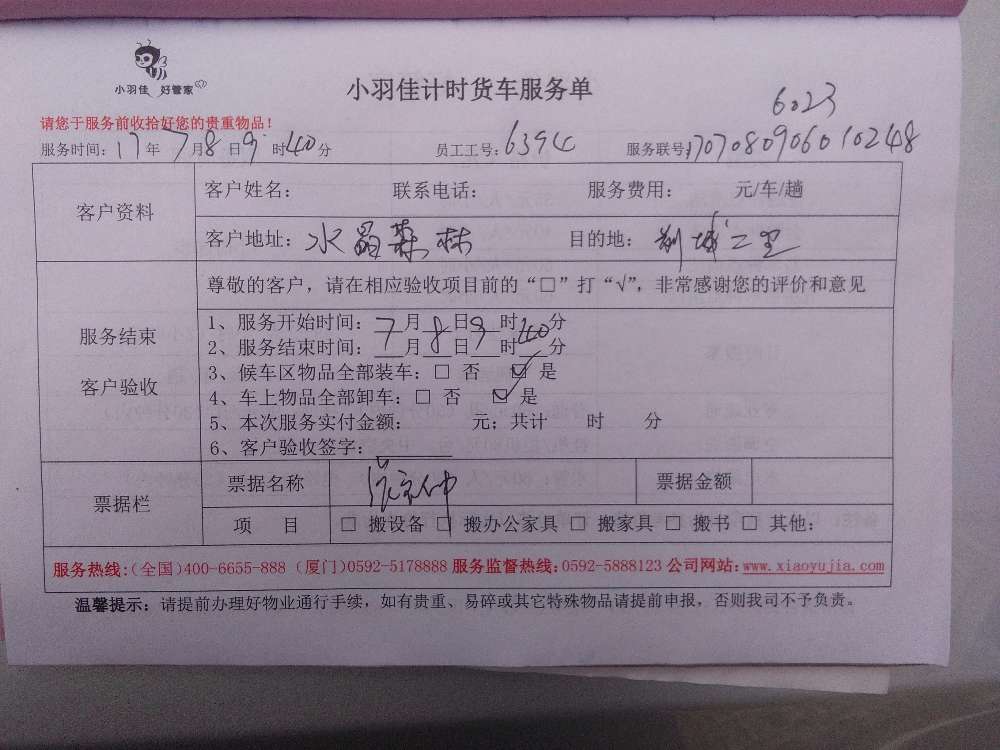 小羽佳 好管家
小羽佳计时货车服务单
6023
请您于服务前收拾好您的贵重物品！
服务时间：17年7月8日9时40分 员工工号：6394 服务联号：1707080906010248
客户资料
客户姓名： 联系电话： 服务费用： 元/车/趟
客户地址：水晶森林 目的地：二里
服务结束
客户验收
尊敬的客户，请在相应验收项目前的“□”打“√”，非常感谢您的评价和意见
1、服务开始时间：7月8日9时40分
2、服务结束时间：月日时分
3、候车区物品全部装车：□ 否 ☑ 是
4、车上物品全部卸车：□ 否 ☑ 是
5、本次服务实付金额： 元；共计 时 分
6、客户验收签字：
票据栏
票据名称 票据金额
项 目 □ 搬设备 □ 搬办公家具 □ 搬家具 □ 搬书 □ 其他：
服务热线：(全国)400-6655-888 (厦门)0592-5178888 服务监督热线：0592-5888123 公司网站：www.xiaoyujia.com
温馨提示：请提前办理好物业通行手续，如有贵重、易碎或其它特殊物品请提前申报，否则我司不予负责。